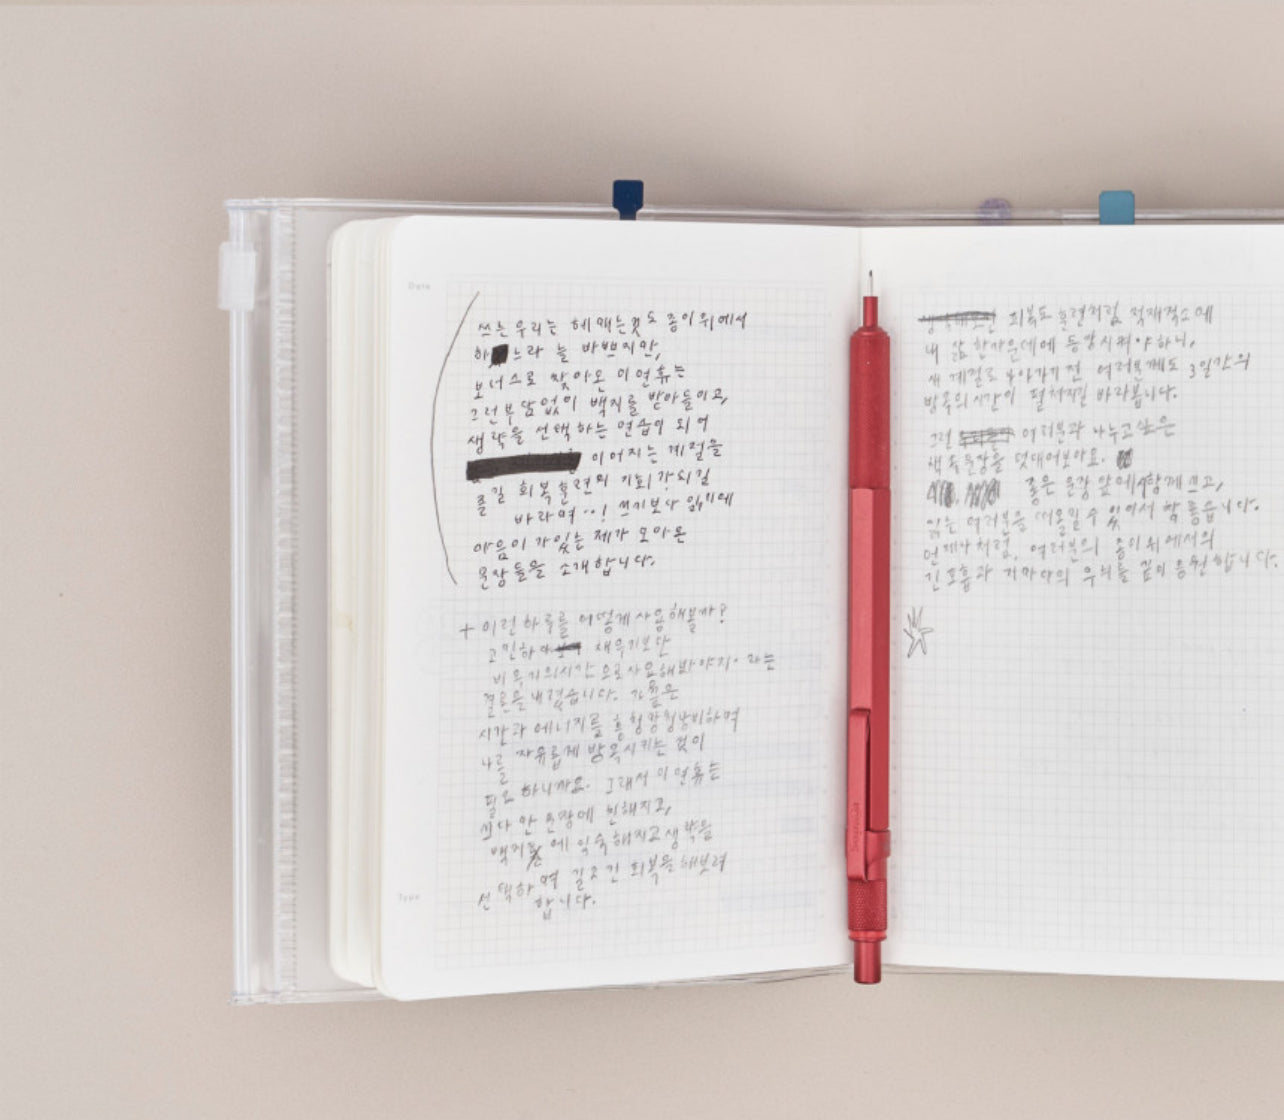 Date
쓰는 우리는 헤매는 것도 종이 위에서
하느라 늘 바쁘지만,
보너스로 찾아온 이 연휴는
그런 부담없이 백지를 받아들이고,
생략을 선택하는 연습이 되어
이어지는 계절을
즐길 회복훈련의 기회가 되길
바라며…! 쓰기보다 읽기에
마음이 가있는 제가 모아온
문장들을 소개합니다.
+ 이런 하루를 어떻게 사용해볼까?
고민하 채우기보단
비우기의 시간으로 사용해봐야지. 라는
결론을 내렸습니다. 가끔은
시간과 에너지를 흥청망청 낭비하며
나를 자유롭게 방목시키는 것이
필요하니까요. 그래서 이 연휴는
쓰다 만 문장에 친해지고,
백지 에 익숙해지고 생략을
선택하며 길고 긴 회복을 해보려
합니다.
Type
회복도 훈련처럼 적재적소에
내 삶 한가운데에 등장시켜야 하니,
새 계절로 나아가기 전 여러분께도 3일간의
방목의 시간이 펼쳐지길 바라봅니다.
그럼 여러분과 나누고 싶은
책 속 문장을 덧대어보아요.
좋은 문장 앞에 함께 쓰고,
읽는 여러분을 떠올릴 수 있어서 참 좋습니다.
언제나처럼, 여러분의 종이 위에서의
긴 호흡과 저마다의 우위를 깊이 응원합니다.